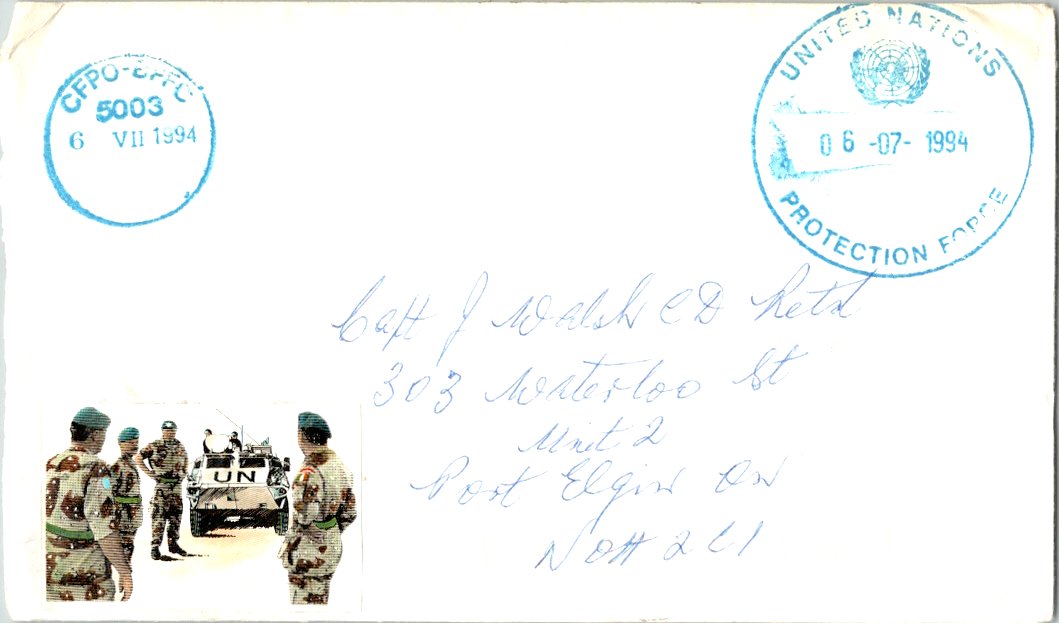 CFPO-BPFC
5003
6 VII 1994
UNITED NATIONS
06 -07- 1994
PROTECTION FORCE
Capt J Walsh CD Retd
303 Waterloo St
Unit 2
Port Elgin ON
N0H 2C1
UN